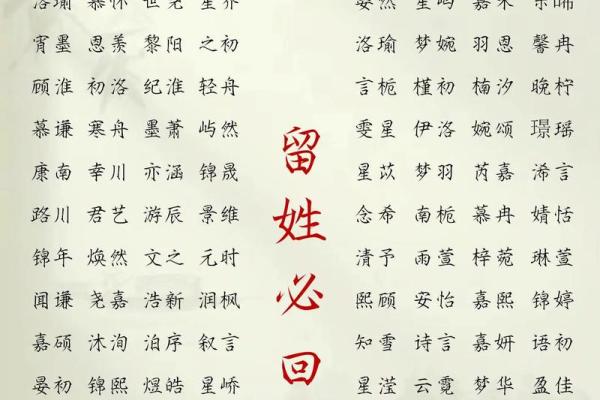 洛瑜 慕怀 世尧 星乔
宵墨 恩羡 黎阳 之初
顾淮 初洛 纪淮 轻舟
慕谦 寒舟 墨萧 屿然
康南 幸川 亦涵 锦晟
路川 君艺 游辰 景维
锦年 焕然 文之 元时
闻谦 尧嘉 浩新 润枫
嘉硕 沐洵 泊序 叙言
晏初 锦熙 煜皓 星峤
留姓必回
洛瑜 梦婉 羽恩 馨冉
言栀 槿初 楠汐 晚柠
雯星 伊洛 婉颂 璟瑶
星苡 梦羽 芮嘉 浠言
念希 南栀 慕冉 婧恬
清予 雨萱 梓菀 琳萱
熙顾 安怡 嘉熙 锦婷
知雪 诗言 嘉妍 语初
星滢 云霓 梦华 盈佳